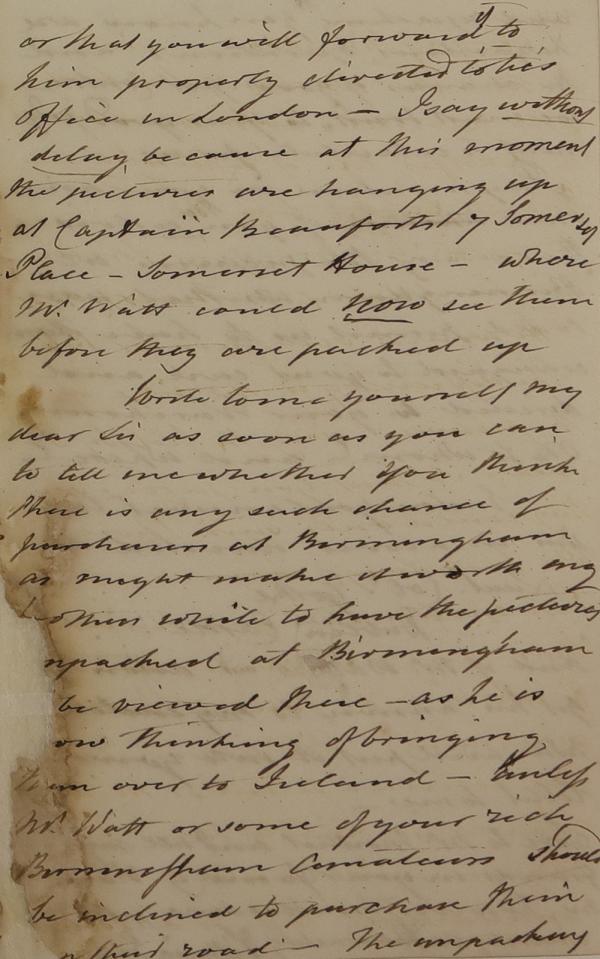 or that you will forward it to
him properly directed to his
Office in London – I say without
delay because at this moment
the pictures are hanging up
at Captain Beauforts 7 Somerset
Place – Somerset House – where
Mr. Watt could now see them
before they are packed up
Write to me yourself my
dear Sir as soon as you can
to tell me whether you think
there is any such chance of
purchasers at Birmingham
as might make it worth my
brothers while to have the pictures
npacked at Birmingham
be viewed there – as he is
ow thinking of bringing
them over to Ireland – Unless
Mr. Watt or some of your rich
Birmingham Amateurs should
be inclined to purchase them
n their road – The unpacking